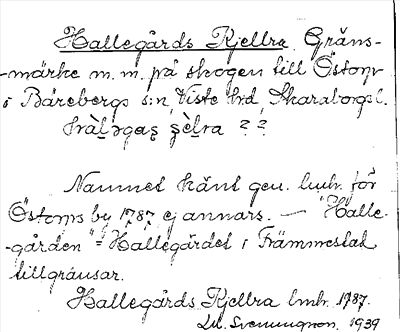 Hallegårds Kjellra Gräns-
-märke m.m. på skogen till Östorp
i Bårebergs s:n, Viste hrd, Skaraborgs l.
hàl̥əgaʂ ʂèl̥ra ? ?
Namnet känt gen. lmhr. för
Östorps by 1787 ej annars. — "Halle-
-gården" = Hallegärdet i Främmestad
tillgränsar.
Hallegårds Kjellra lmhr. 1787.
Lll. Svenungson. 1939